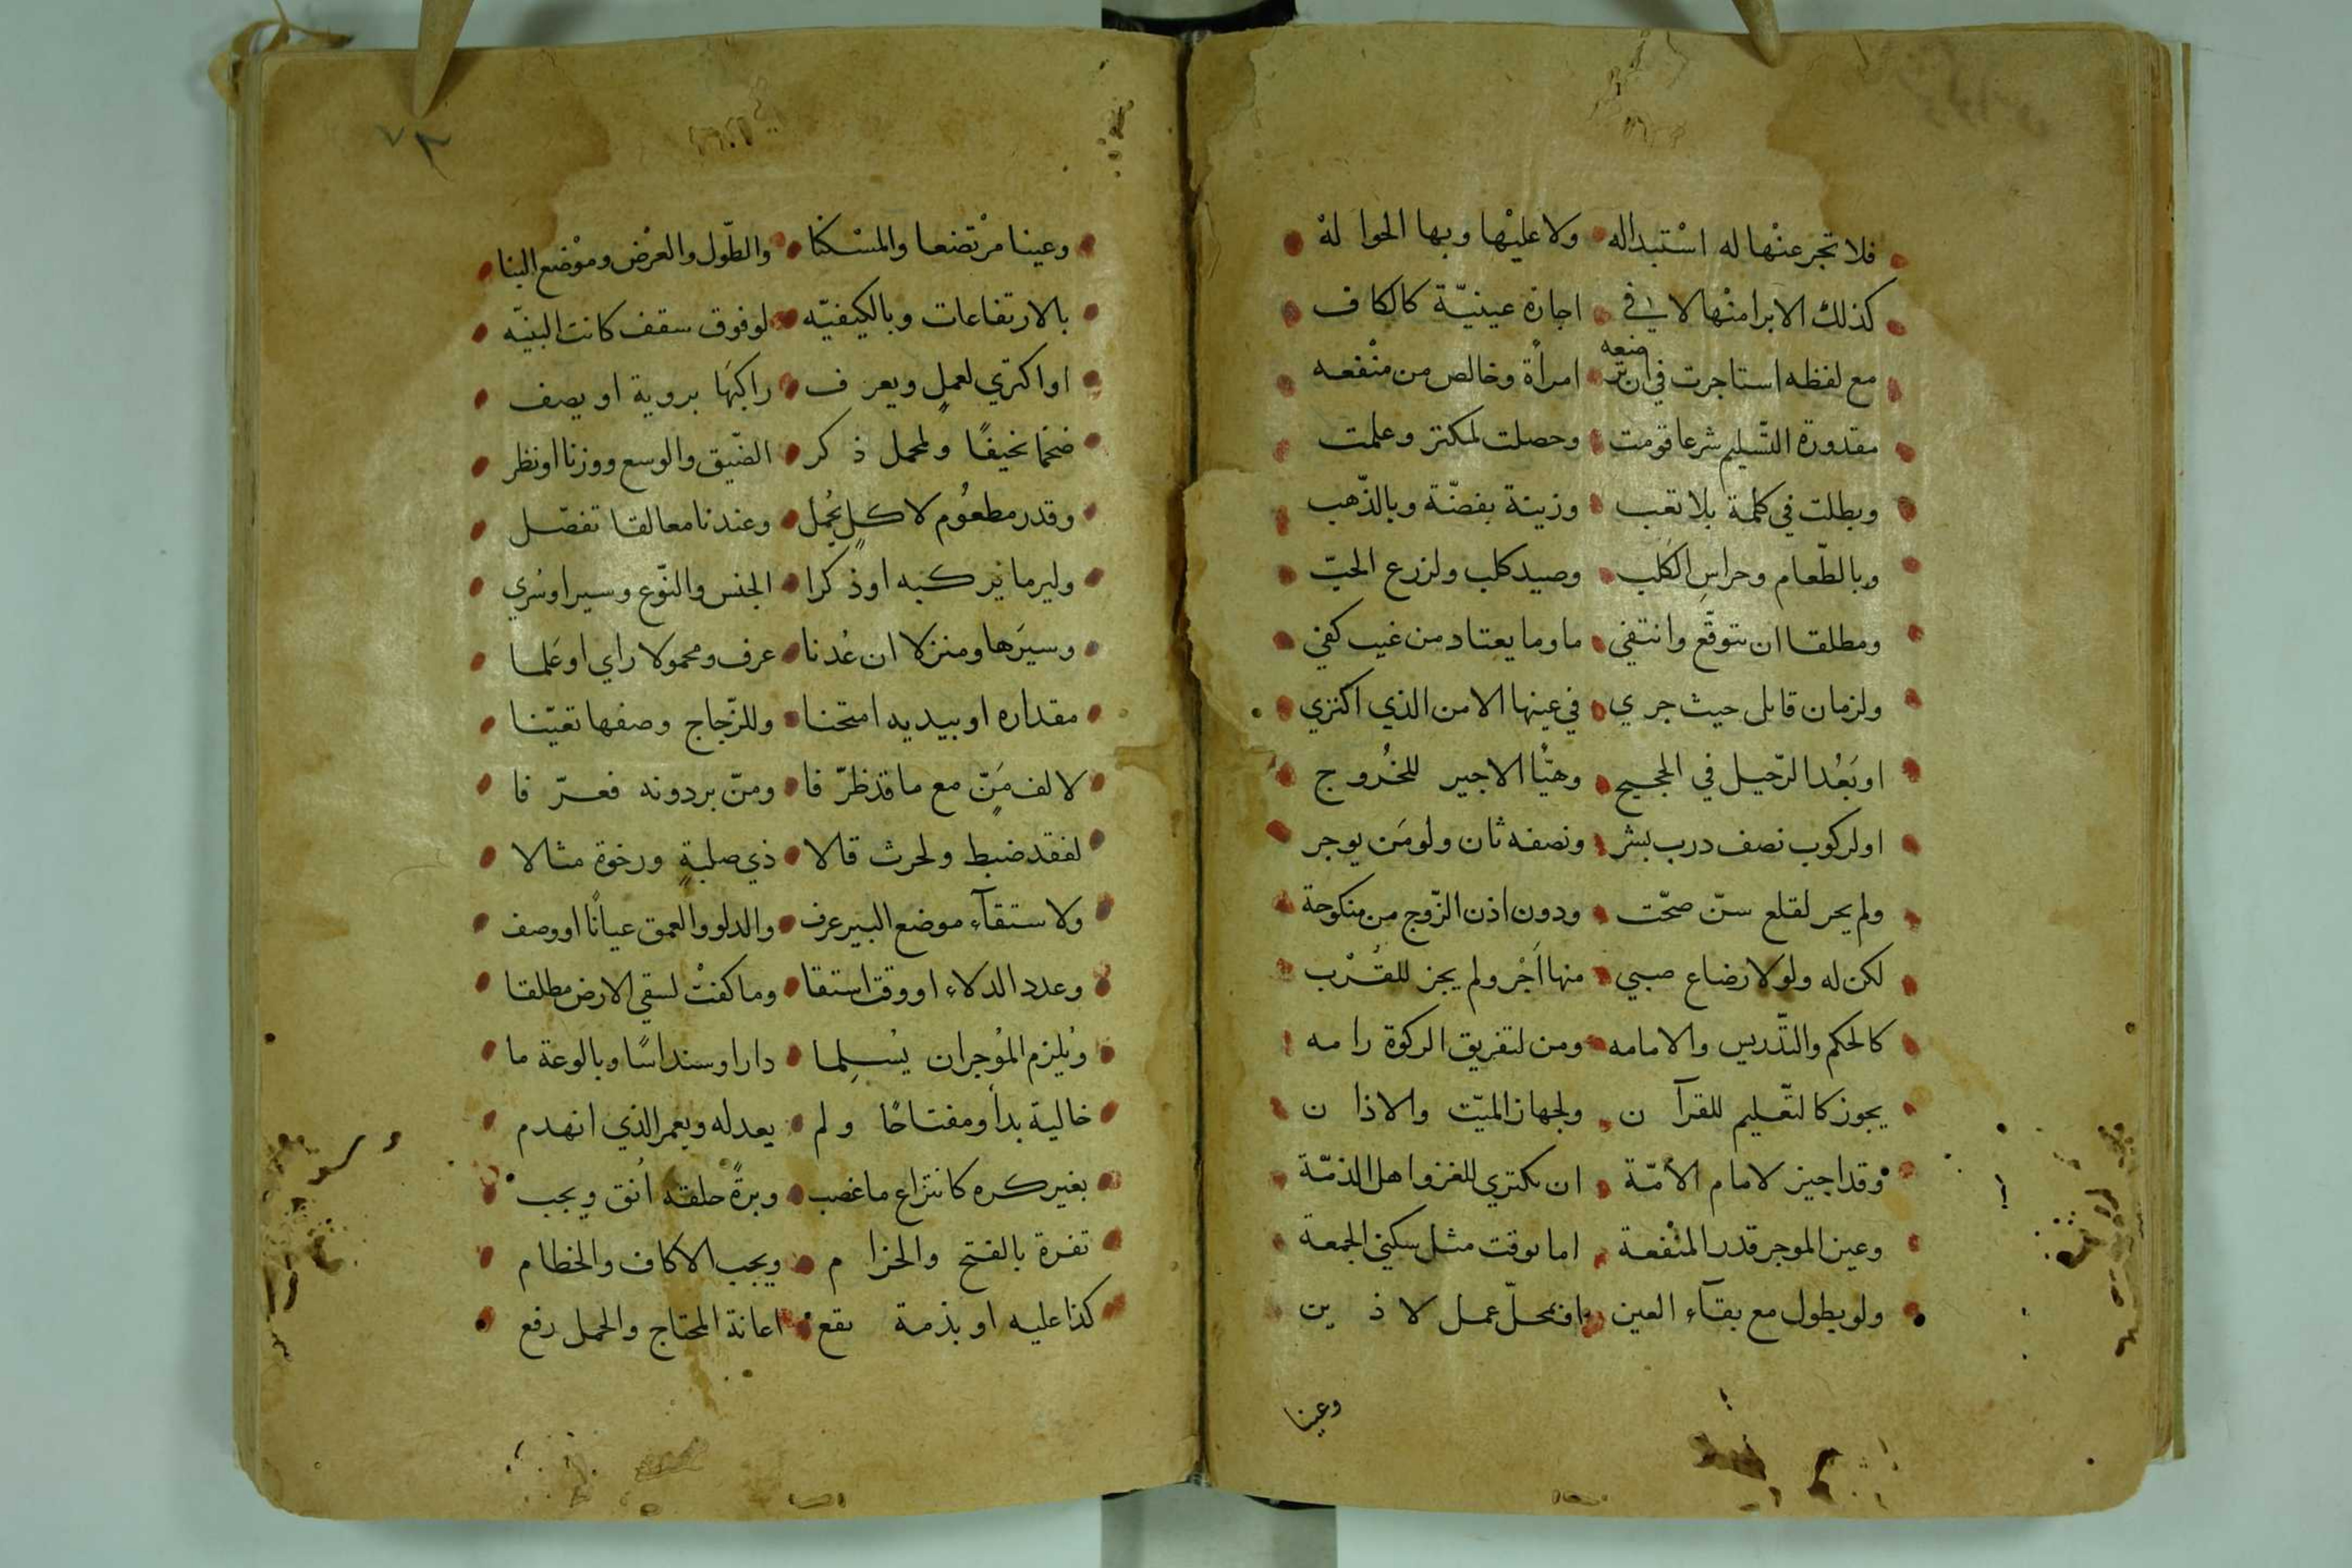 فلا تجر عنْها له اسْتبداله ولا عليْها وبها الحوا لهْ
كذلك الابرا منْها لا في اجازة عينيّة كالكاف
مع لفظه استاجرت في ان ترضعه امرأة وخالص من منْفعه
مقدورة التّسليم شرعا قومت وحصلت لمكتر وعلمت
وبطلت في كلمة بلا تعب وزينة بفضّة وبالذّهب
وبالطّعام وحراسِ الكَلب وصيد كلب ولزرع الحبّ
ومطلقا ان تتوقّع وانتفي ما وما يعتاد من غيب كفي
ولزمان قابل حيث جري في عينها الا من الذي اكتري
او بَعْد الرّحيل في الحجيج وهيّأ الاجير للخُروج
او لركوب نصف درب بشر ونصفه ثان ولو مَن يوجر
ولم يجر لقلع سنّ صحّت ودون اذن الزّوج من منكوحة
لكن له ولو لارضاع صبي منها اَجْر ولم يجز للقُرْب
كالحكم والتّدريس والامامه ومن لتفريق الزكوة رامه
يجوز كالتّعليم للقرآن ولجهاز الميّت والاذان
وقد اجيز لامام الأمّة ان يكتري للغزو اهل الذمّة
وعين الموجر قدر المنْفعة اما بوقت مثل سكني الجمعة
ولو بطول مع بقآء العين او بمحلّ عمل لا ذين
وعينا
٧٣
وعينا مرْتضعا والمسْكنا والطّول والعرْض وموْضع البنا
بالارتفاعات وبالكيفيّه لو فوق سقف كانت البنيّه
او اكتري لعملٍ ويعرف راكبَها بروية او يصف
ضخما نحيفًا ولمحمل ذكر الضّيق والوسع ووزنا او نظر
وقدر مطعُوم لاكلٍ يُجْمل وعندنا معالقا تفصّل
وليرما يركبه او ذكرا الجنس والنّوع وسيرا او سُري
وسيَرها ومنزلا ان عُدنا عرف ومحمولا راي او عَلما
مقداره او بيديه امتحنا وللزّجاج وصفها تعيّنا
لا لف مَنٍّ مع ما قد ظرّفا ومنّ بردونه فعرّفا
لفقد ضبط ولحرث قالا ذي صلبةٍ ورخوة مثالا
ولاستقآء موضع البير عرف والدلو والعمق عيانًا او وصف
وعدد الدلاء او وقت استقا وما كفتْ لسقي الارض مطلقا
ويُلزم المُوجر ان يُسلِما دارا وسنداسًا وبالوعة ما
خالية بدأ ومفتاحًا ولم يعد له ويعمر الذي انهدم
بغير كره كانتزاع ما غصب وبرةً حلقه انق ويجب
تفرة بالفتح والحزام ويجب الاكاف والخطام
كذا عليه او بذمة تقع اعانة المحتاج والحمل رفع